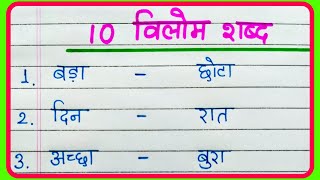 10 विलोम शब्द
1. बड़ा - छोटा
2. दिन - रात
3. अच्छा - बुरा